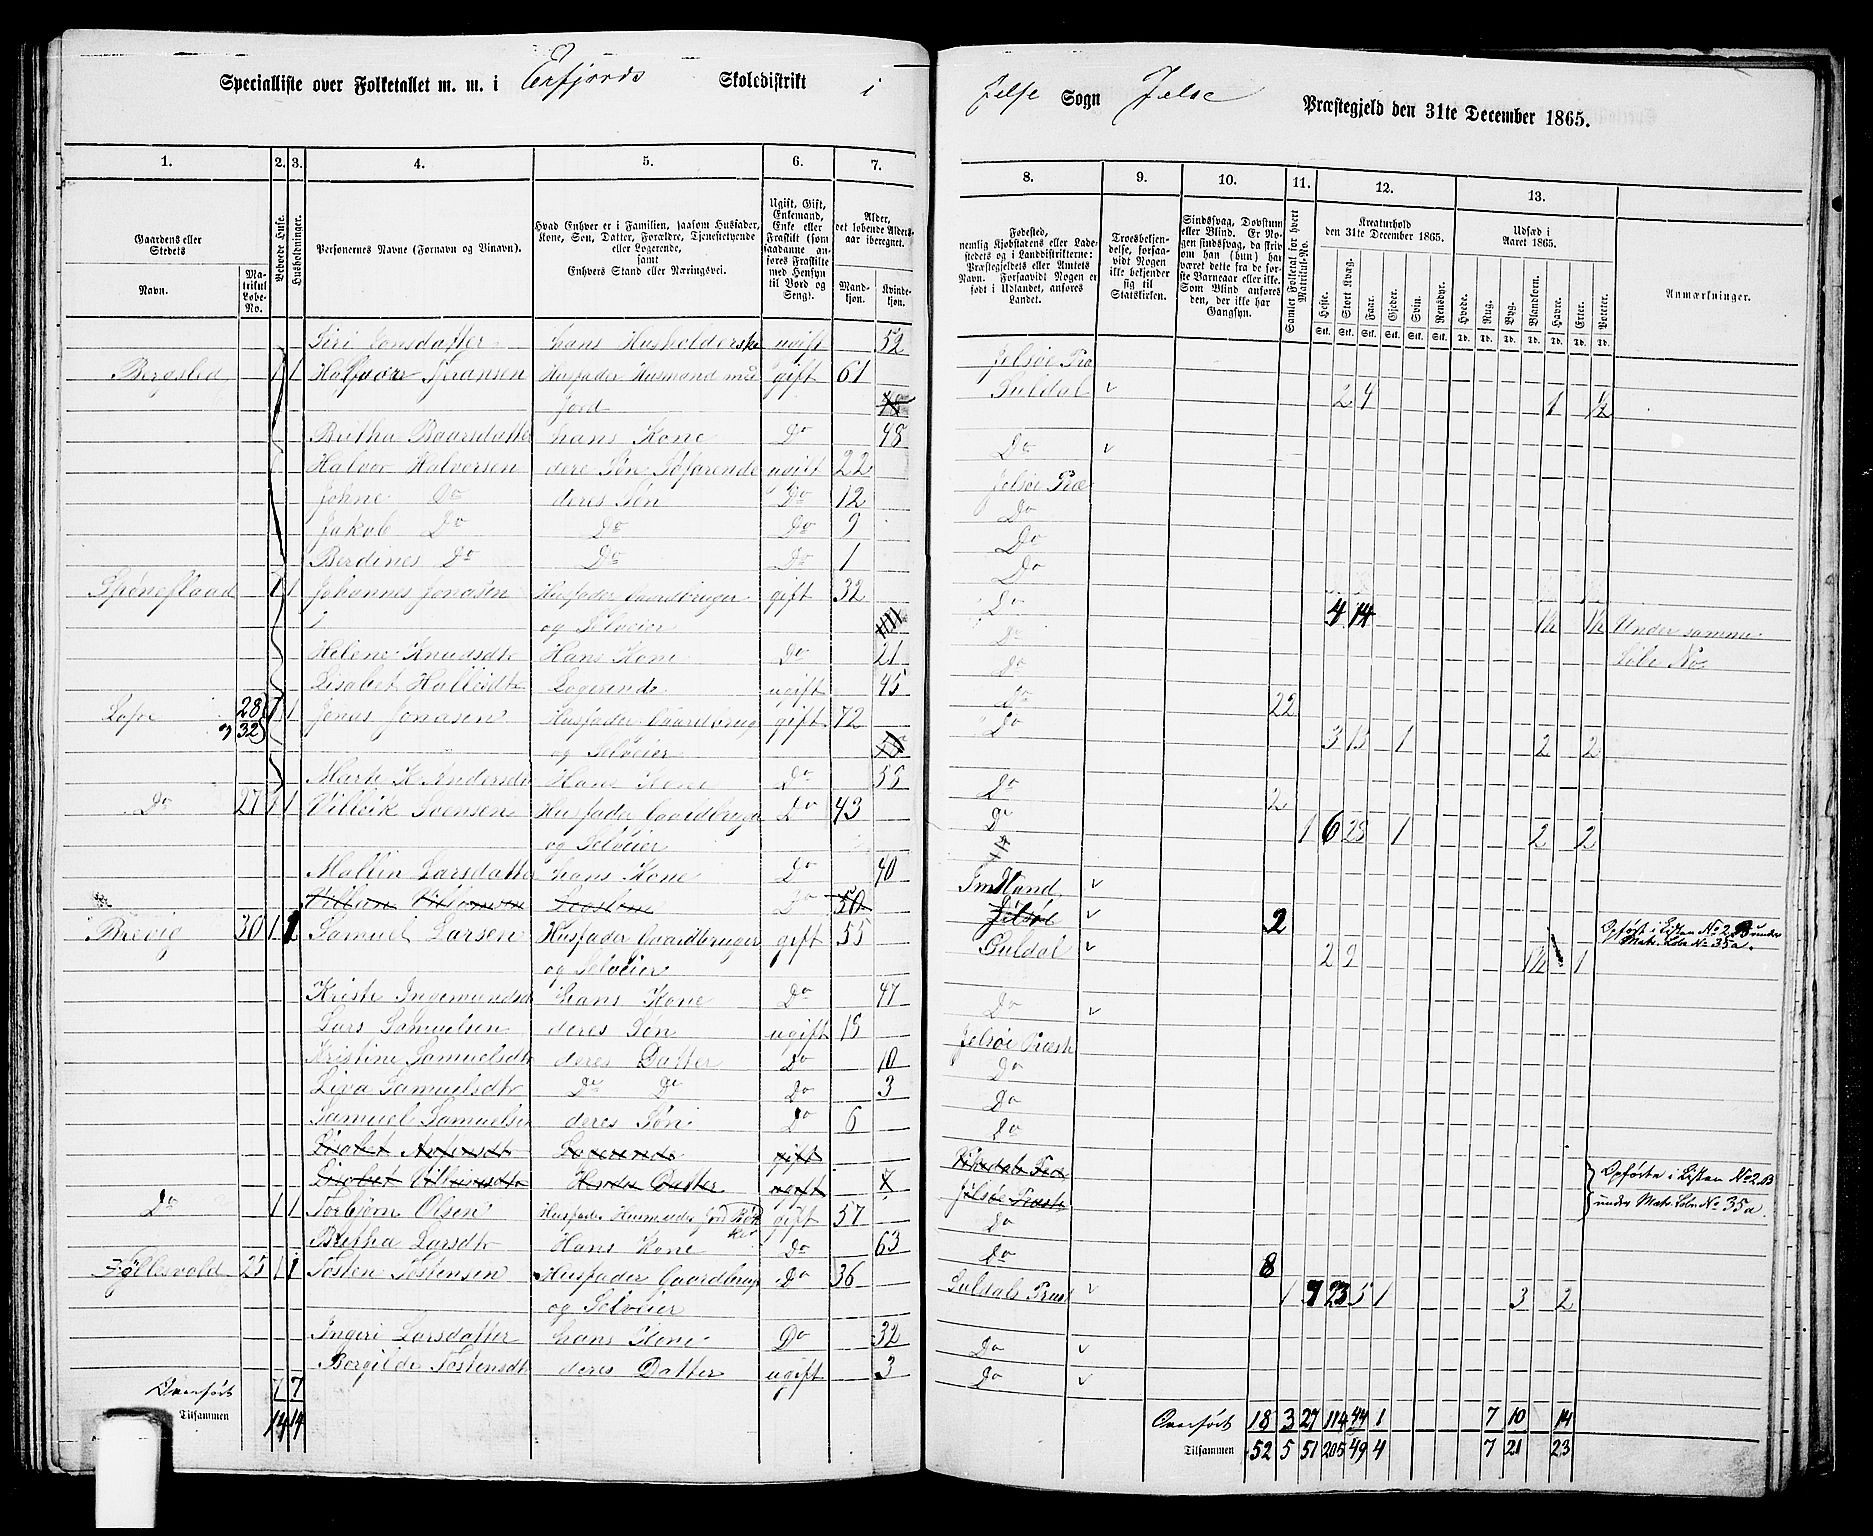 Specialliste over Folketallet m. m. i Erfjords Skoledistrikt i Jelse Sogn Jelse Præstegjeld den 31te December 1865.
1. 2. 3. 4. 5. 6. 7. 8. 9. 10. 11. 12. 13.
Gaardens eller Stedets Navn. Matrikul Løbe-No.
Beboede Huse.
Husholdninger.
Personernes Navne (Fornavn og Tilnavn).
Hvad Enhver er i Familien, saasom Husfader, Kone, Søn, Datter, Forældre, Tjenestetyende eller Logerende, samt Enhvers Stand eller Næringsvei.
Ugift, Gift, Enkemand, Enke eller Fraskilt (som saadanne anføres Fraskilte med Hensyn til Bord og Seng).
Alder, det løbende Aldersaar iberegnet. Mandkjøn. Kvindekjøn.
Fødested, nemlig Kjøbstadens eller Ladestedets og i Landdistrikterne: Præstegjeldets eller Amtets Navn. Forsaavidt Nogen er født i Udlandet, anføres Landet.
Troesbekjendelse, forsaavidt Nogen ikke bekjender sig til Statskirken.
Sindssvag, Døvstum eller Blind. Er Nogen sindssvag, da skrives om han (hun) har været dette fra de første Barneaar eller ikke. Som Blind anføres den, der ikke har Gangsyn.
Samlet Folketal for hvert Matrikul-No.
Kreaturhold den 31te December 1865.
Heste. Stort Kvæg. Faar. Gjeder. Svin. Rensdyr.
Udsæd i Aaret 1865.
Hvede. Rug. Byg. Blandkorn. Havre. Erter. Poteter.
Anmærkninger.
Siri Jonsdatter hans Husholderske ugift 52 Jelsøe Præ
Bergslid 1 1 Halfvorr Gjeransen Husfader Husmand med gift 61 Suldal v 2 4 1 ½
Jord
Britha Baarsdatter hans Kone Do 48 Do v
Halvor Halversen dere Søn Søfarende ugift 22 Jelsøe Præ
Johne Do deres Søn Do 12 Do
Jakob Do Do Do 9 Do
Berdines Do Do Do 1 Do
1 1 Johannis Jonasen Husfader Gaardbruger gift 32 Do 4 14 1½ 1½ Under samme
og Selveier Do Løbe No
Helene Knudsdtr Hans Kone Do 21 Do
Lisabet Halleidtr Logerende ugift 45 Do
28 og 32 1 1 Jonas Jonasen Husfader Gaardbrug gift 72 Do 22 3 15 1 2 2
og Selveier
Marte K Andersdtr Hans Kone Do 55 Do
Do 27 1 1 Villeik Svensen Husfader Gaardbruger Do 43 Do 2 1 6 28 1 2 2
og Selveier
Mallin Larsdatter hans Kone Do 40 Imsland v
Do 50 Jelsøe v
Brevig 30 1 1 Samuel Larsen Husfader Gaardbruger gift 55 Suldal v 2 2 9 1½ 1 Opført i Listen No 2 B under
og Selveier Matr. Løbe No 35a.
Kirste Ingemundsd hans Kone Do 47 Do v
Lars Samuelsen deres Søn ugift 15 Jelsøe Præste
Kristine Samuelsdtr deres Datter Do 10 Do
Liva Samuelsdtr Do Do Do 3 Do
Samuel Samuelsen deres Søn Do 6 Do
gift Opførte i Listen No 2 B
Hendes Datter ugift Jelsøe Præste under Matr. Løbe No 35a.
Do 1 1 Torbjørn Olsen Husfader Husmand gift 57 Do
Britha Larsdtr Hans Kone Do 63 Do
25 1 1 Tosten Tostensen Husfader Gaardbrug Do 36 Suldals Præst v 8 1 9 23 5 1 3 2
og Selveier
Ingeri Larsdatter hans Kone Do 32 Do v
Borgilde Tostensdt deres Datter ugift 3 Do v
Overført 7 7 Overført 18 3 27 114 44 1 7 10 14
Tilsammen 14 14 Tilsammen 52 5 51 205 49 4 7 21 23